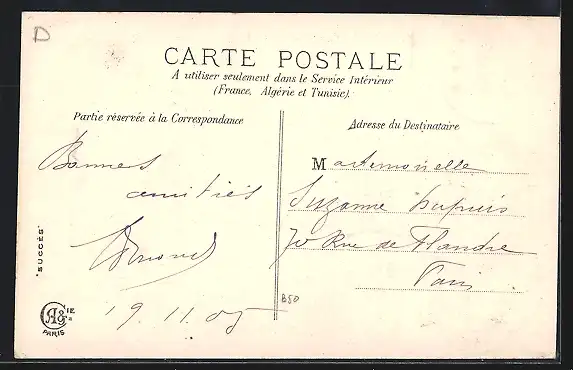 D
CARTE POSTALE
A utiliser seulement dans le Service Intérieur
(France, Algérie et Tunisie).
Partie réservée à la Correspondance
Adresse du Destinataire
Bonnes
amitiés
19.11.05
Mademoiselle
Suzanne Dupuis
70 Rue de Flandre
Paris
B50
"SUCCÈS"
CIE
PARIS